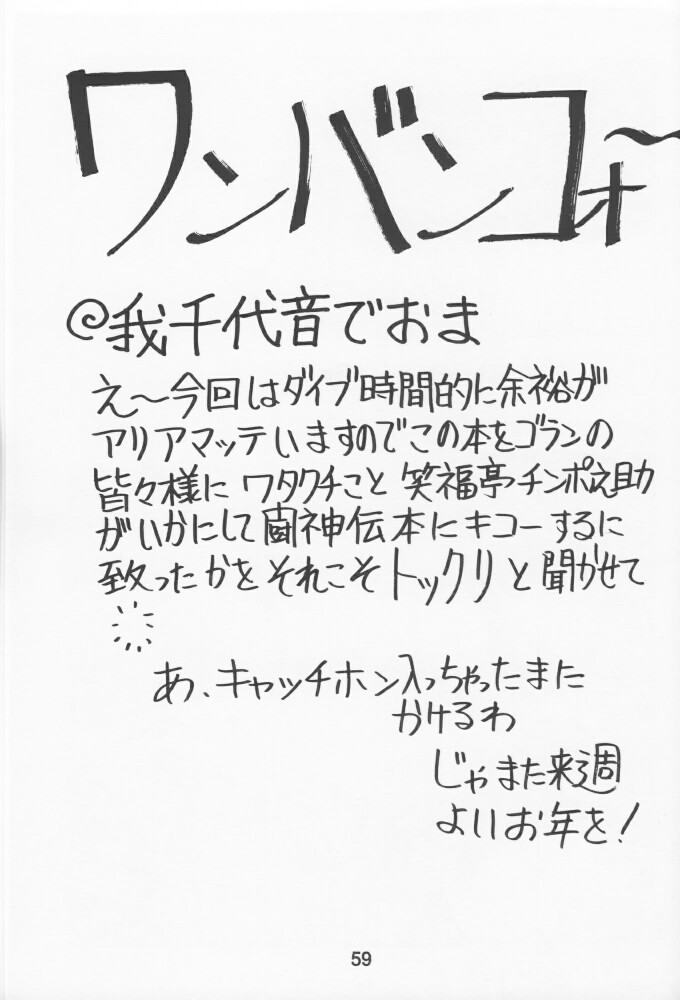 ワンバンコォ〜
@我千代音でおま
え〜今回はダイブ時間的に余裕が
アリアマッテいますのでこの本をゴランの
皆々様にワタクチこと笑福亭チンポ之助
がいかにして闘神伝本にキコーするに
致ったかをそれこそトックリと聞かせて
あ、キャッチホン入っちゃったまた
かけるわ
じゃまた来週
よいお年を!
59